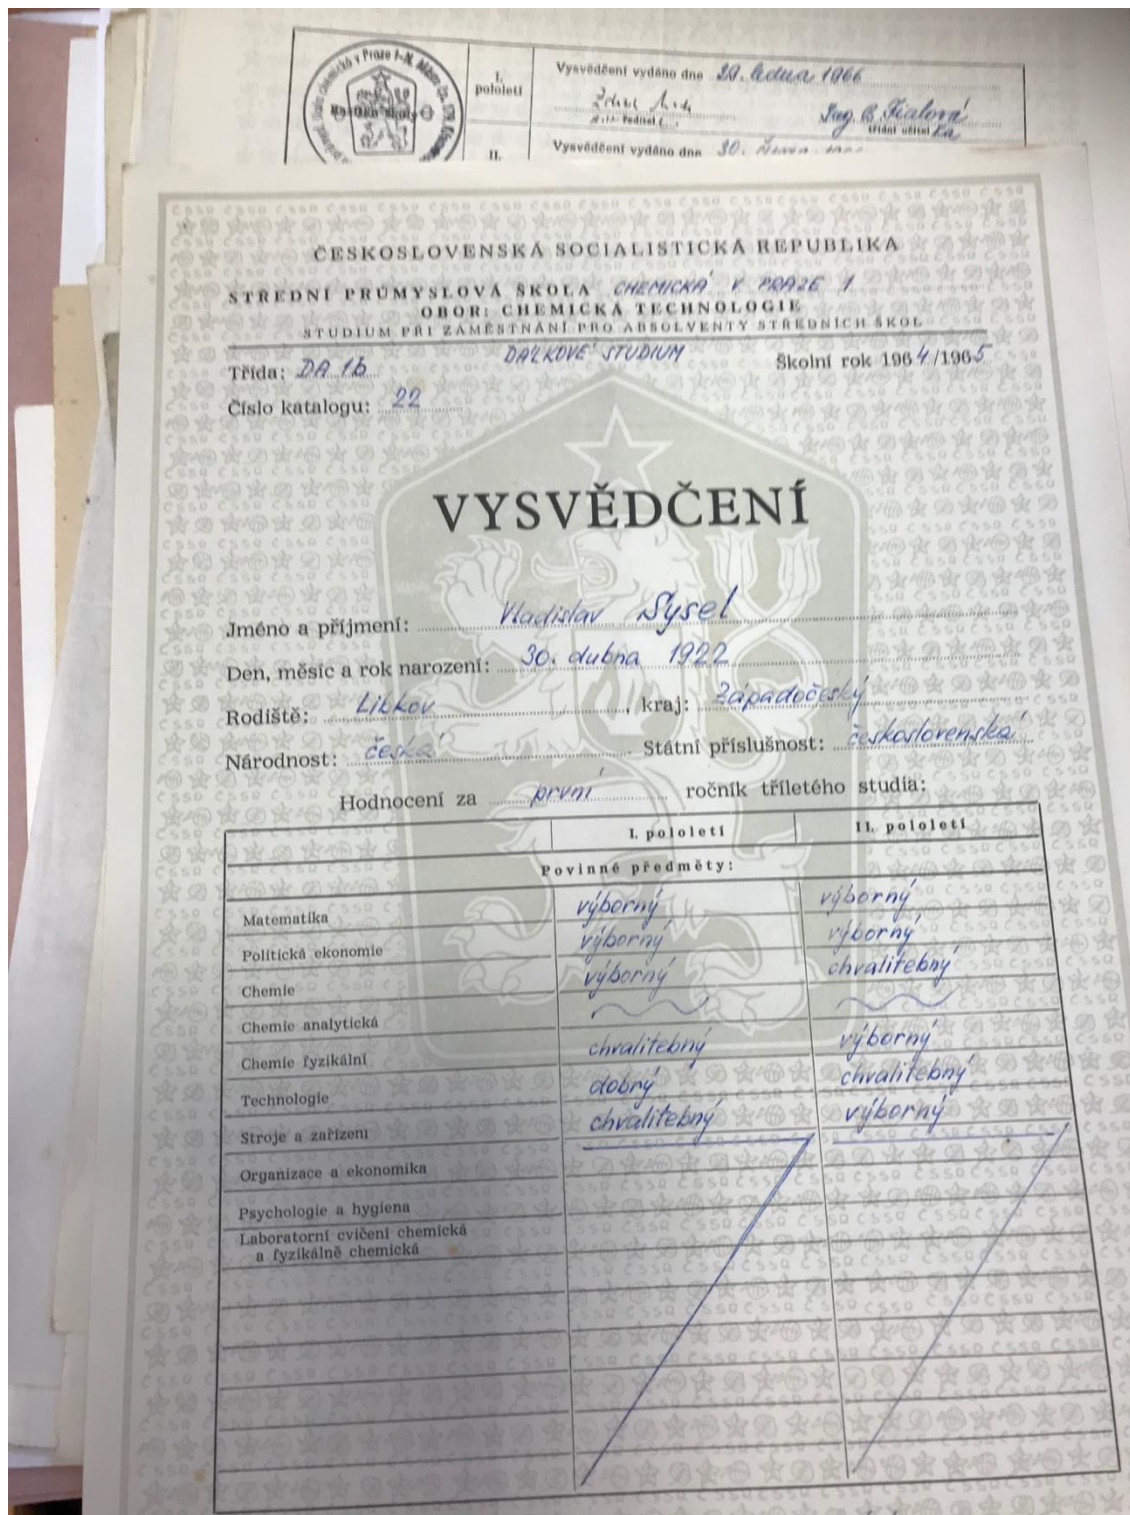 I. pololetí
Vysvědčení vydáno dne 29. ledna 1966
Ing. B. Fialová
třídní učitel ka
II.
Vysvědčení vydáno dne 30.
ČESKOSLOVENSKÁ SOCIALISTICKÁ REPUBLIKA
STŘEDNÍ PRŮMYSLOVÁ ŠKOLA CHEMICKÁ V PRAZE 1
OBOR: CHEMICKÁ TECHNOLOGIE
STUDIUM PŘI ZAMĚSTNÁNÍ PRO ABSOLVENTY STŘEDNÍCH ŠKOL
DÁLKOVÉ STUDIUM
Třída: DA 1b Školní rok 1964/1965
Číslo katalogu: 22
VYSVĚDČENÍ
Jméno a příjmení: Vladislav Sysel
Den, měsíc a rok narození: 30. dubna 1922
Rodiště: Libkov, kraj: Západočeský
Národnost: česká Státní příslušnost: československá
Hodnocení za první ročník tříletého studia:
I. pololetí II. pololetí
Povinné předměty:
Matematika výborný výborný
Politická ekonomie výborný výborný
Chemie výborný chvalitebný
Chemie analytická
Chemie fyzikální chvalitebný výborný
Technologie dobrý chvalitebný
Stroje a zařízení chvalitebný výborný
Organizace a ekonomika
Psychologie a hygiena
Laboratorní cvičení chemická
a fyzikálně chemická